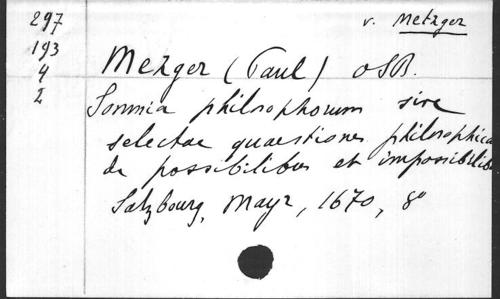 297
193
4
2
v. Metzger
Mezger (Paul) OSB.
Somnia philosophorum sive
selectae quaestiones philosophica
de possibilibus et impossibilibu
Salzbourg, Mayr, 1670, 8°